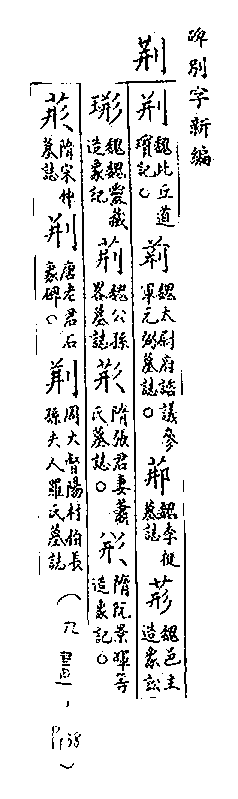 碑別字新編
荆
荆魏比丘道瓊記。荊魏太尉府諮議參軍元弼墓誌。 魏李挺墓誌 魏邑主造象訟
魏魏靈藏造象記 荊魏公孫畧墓誌 隋張君妻蕭氏墓誌。 隋阮景暉等造象記。
隋宋仲墓誌 荆唐老君石象碑。荆周大督陽村伯長孫夫人羅氏墓誌
(九畫, P.58)